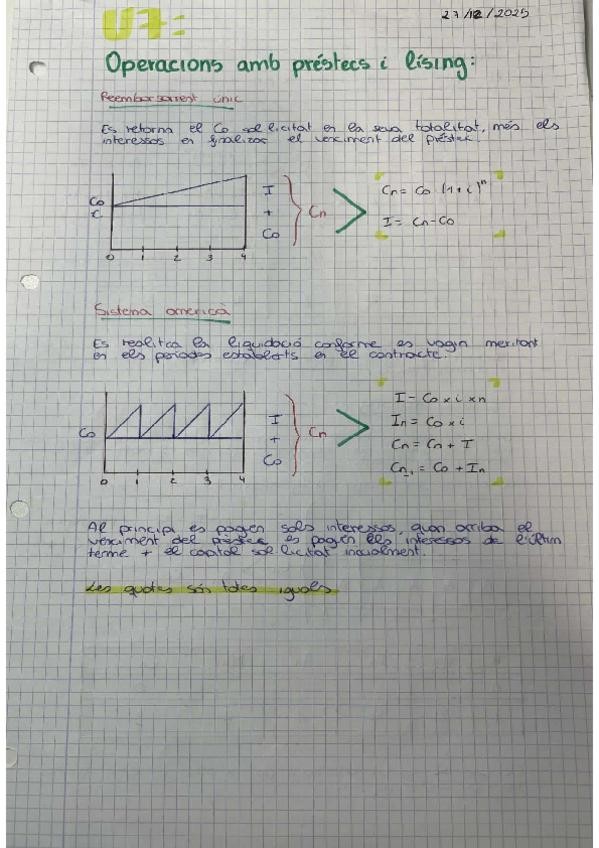 27/12/2025
U7:
Operacions amb préstecs i lísing:
Reemborsament únic
Es retorna el Co sol·licitat en la seva totalitat, més els
interessos en finalitzar el venciment del préstec.
Co
C
0 1 2 3 4
I
+
Co
Cn
Cn = Co (1+i)^n
I = Cn-Co
Sistema americà
Es realitza la liquidació conforme es vagin meritant
en els períodes establerts en el contracte.
Co
0 1 2 3 4
I
+
Co
Cn
I = Co x i x n
In = Co x i
Cn = Cn + I
Cn = Co + In
Al principi es paguen sols interessos, quan arriba el
venciment del préstec es paguen els interessos de l'últim
terme + el capital sol·licitat inicialment.
Les quotes són totes iguals